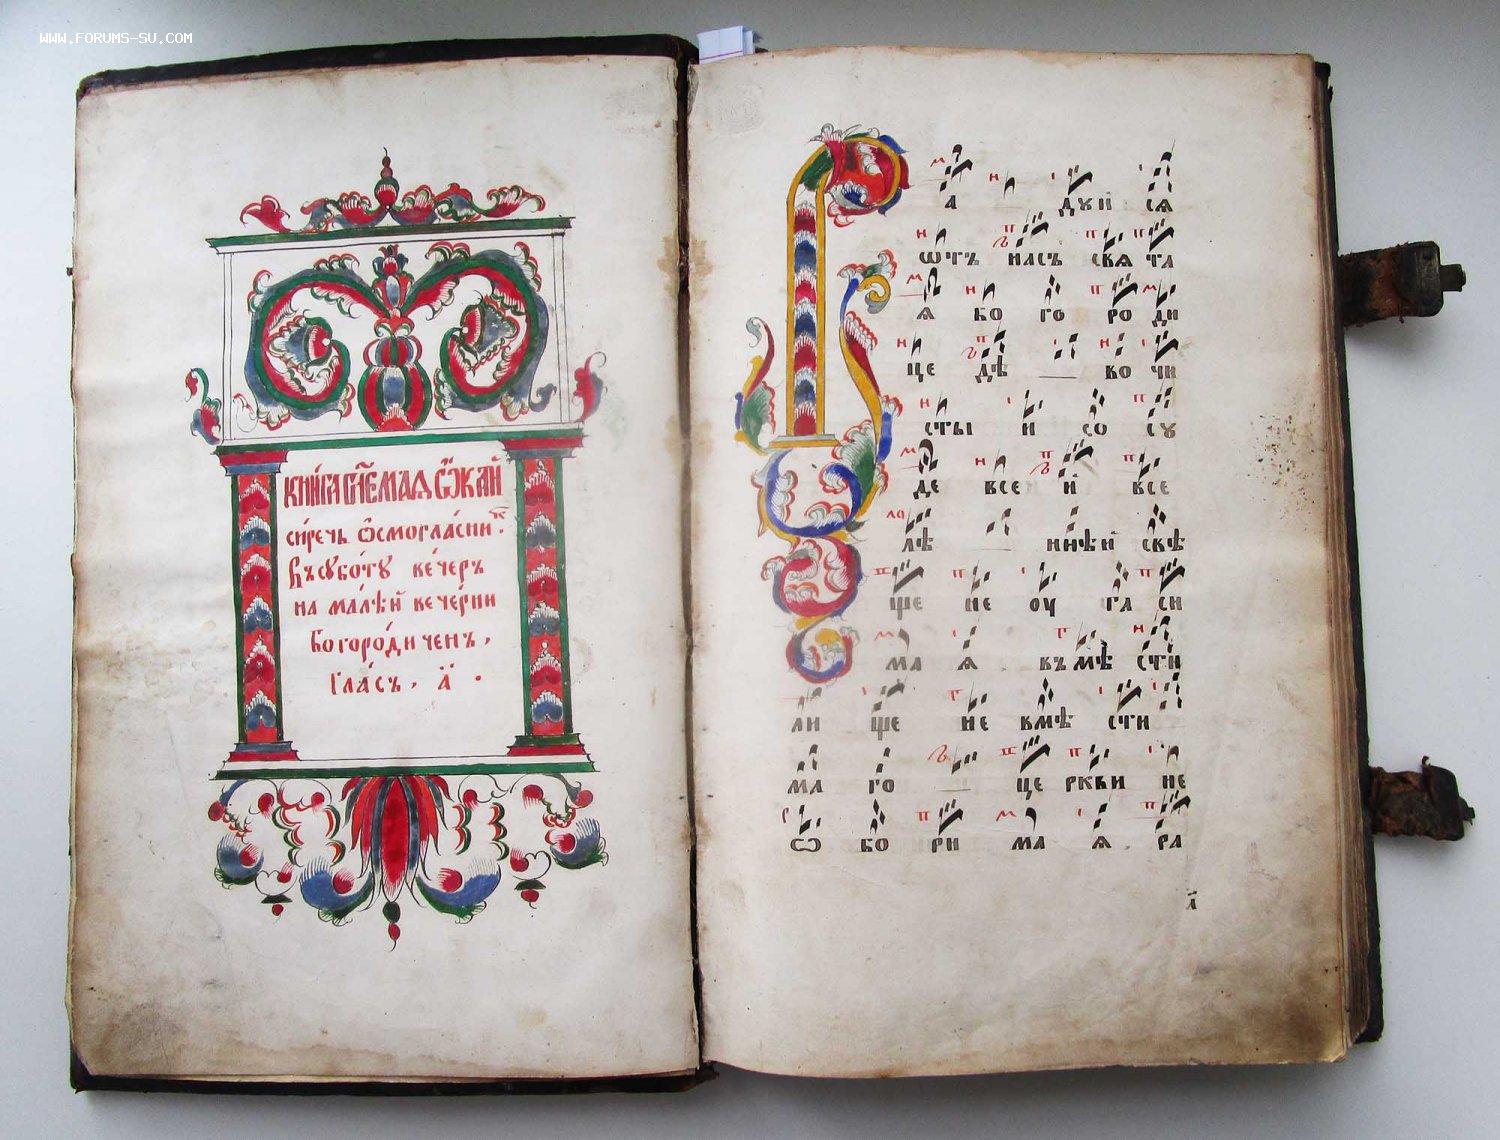 WWW.FORUMS-SU.COM
КНИ́ГА ГЛЕ́МАЯ Ѻ҆КАЙ
си́речь ѻ҆смогла́сни
Въ сꙋбо́тꙋ ве́черъ
на ма́лѣй вече́рни
Богоро́диченъ,
Гла́съ, а҃ .
а дꙋй ся
ѿтъ насъ свя та
я бо го ро ди
це дѣ во чи
сты и со сꙋ
де все й все
лѣ ннѣй свѣ
ще не оу га си
ма я въ мѣ сти
ли ще не вмѣ сти
ма го це ркви не
ѡ бо ри ма я . ра